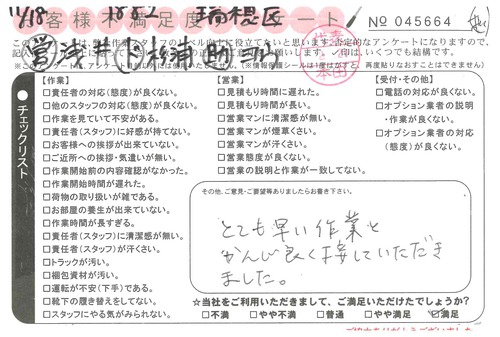 11/18
お客様不満足度アンケート
No 045664
瑞穂区
この
様は、
チェックリスト
【作業】
□責任者の対応(態度)が良くない。
□他のスタッフの対応(態度)が良くない。
□作業を見ていて不安がある。
□責任者(スタッフ)に好感が持てない。
□お客様への挨拶が出来ていない。
□ご近所への挨拶・気遣いが無い。
□作業開始前の内容確認がなかった。
□作業開始時間が遅れた。
□荷物の取り扱いが雑である。
□お部屋の養生が出来ていない。
□作業時間が長すぎる。
□責任者(スタッフ)に清潔感が無い。
□責任者(スタッフ)が汗くさい。
□トラックが汚い。
□梱包資材が汚い。
□運転が不安(下手)である。
□靴下の履き替えをしてない。
□スタッフにやる気がみられない。
【営業】
□見積もり時間に遅れた。
□見積もり時間が長い。
□営業マンに清潔感が無い。
□営業マンが煙草くさい。
□営業マンが汗くさい。
□営業態度が良くない。
□営業の説明と作業が一致してない。
【受付・その他】
□電話の対応が良くない。
□オプション業者の説明
・作業が良くない。
□オプション業者の対応
(態度)が良くない。
その他、ご意見・ご要望等ありましたらお書き下さい。
とても早い作業と
かんじ良く接していただき
ました。
☆当社をご利用いただきまして、ご満足いただけたでしょうか?
□不満 □やや不満 □普通 □やや満足 ☑満足